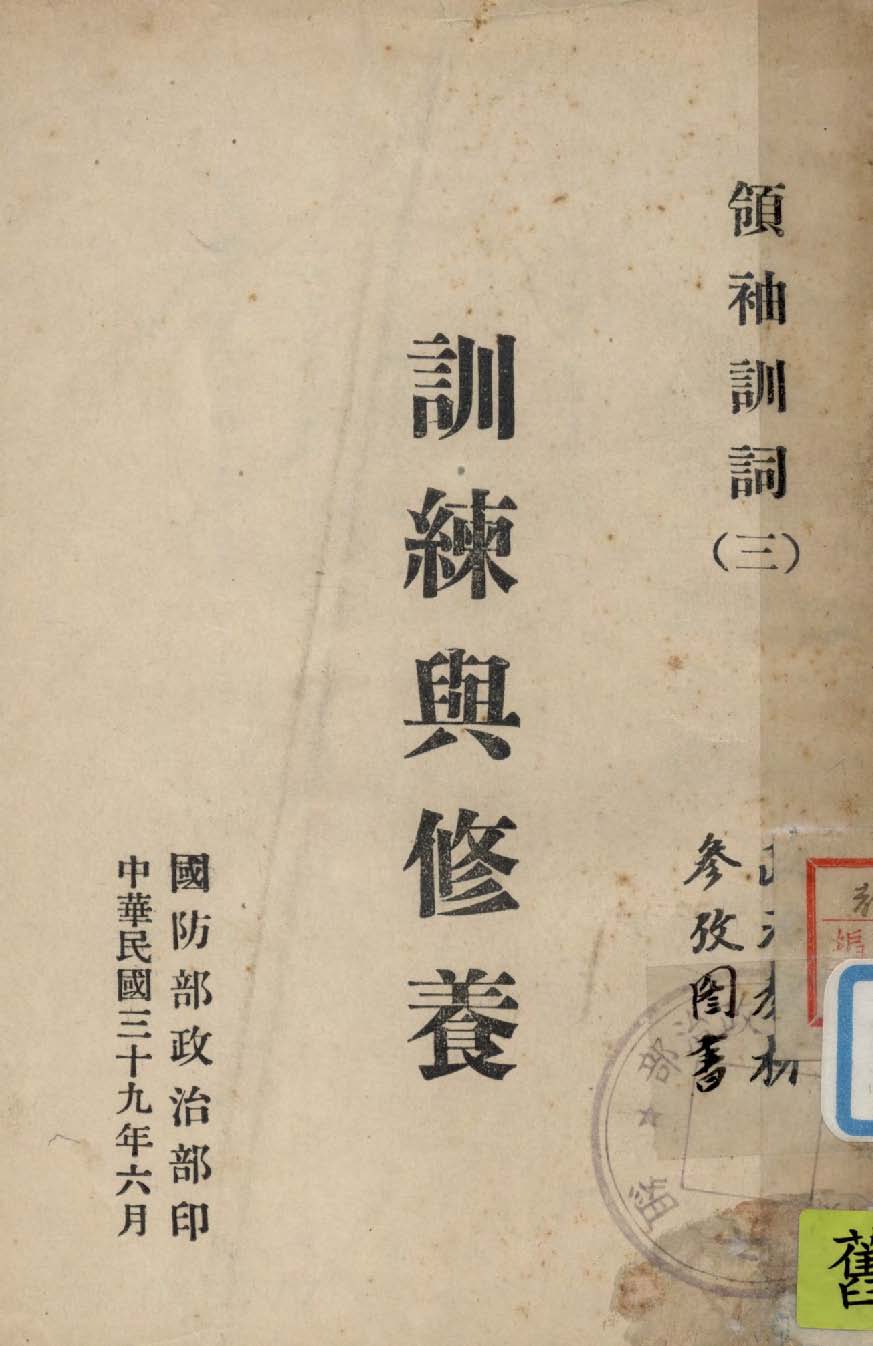 領袖訓詞(三)
訓練與修養
國防部政治部印
中華民國三十九年六月
參攷圖書
部
舊